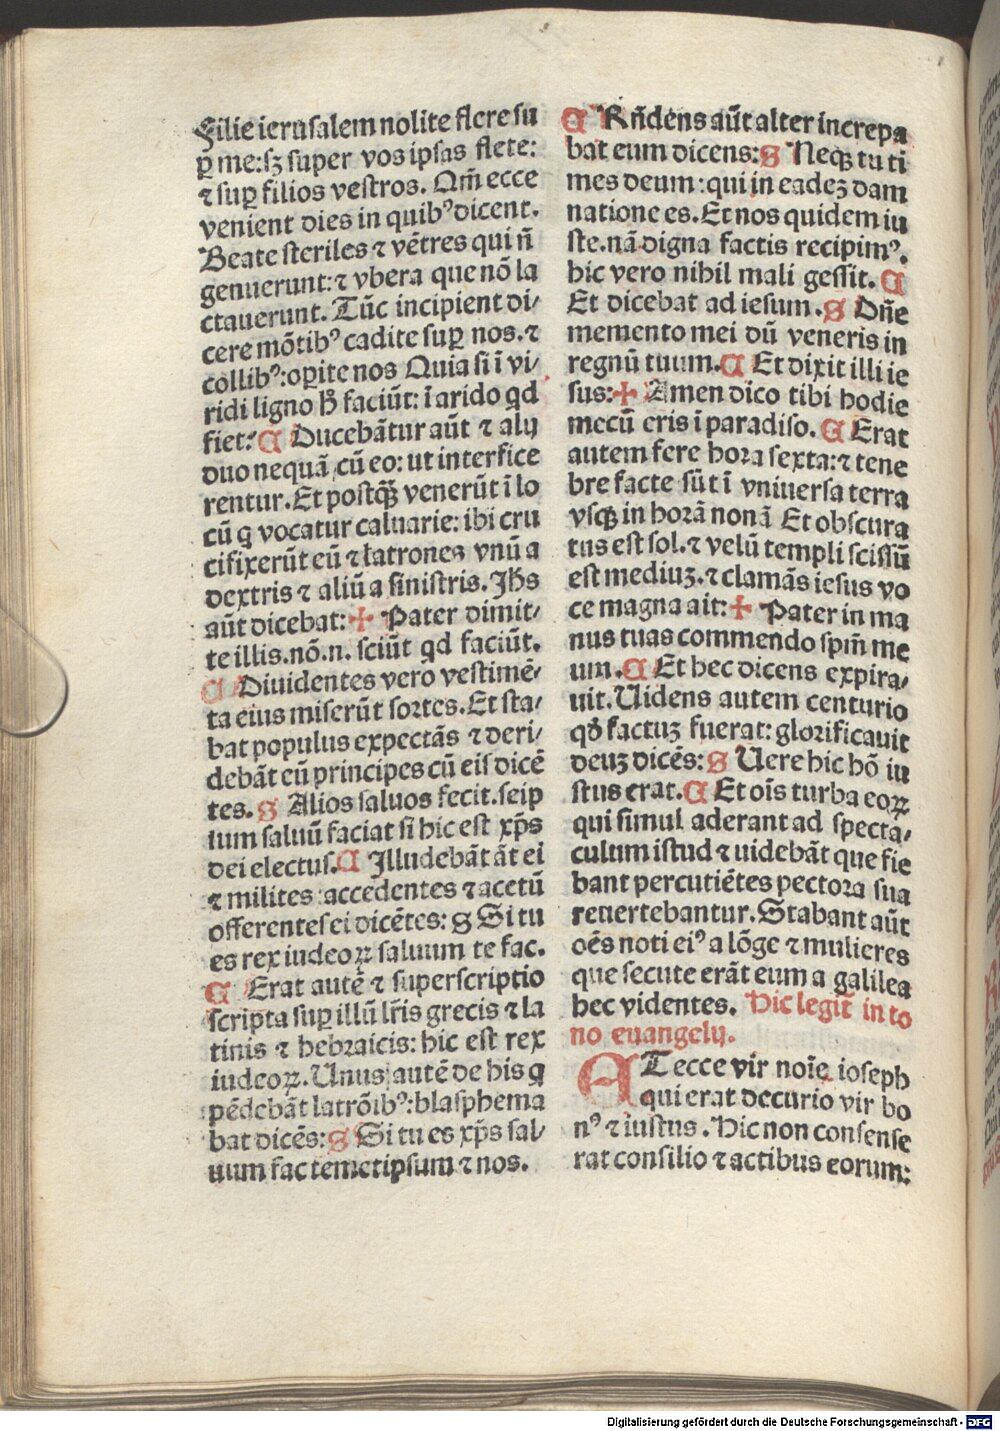 Filie ierusalem nolite flere su
ꝑ me:sꝫ super vos ipsas flete:
⁊ suꝑ filios vestros. Qm̃ ecce
venient dies in quibꝰ dicent.
Beate steriles ⁊ vẽtres qui ñ
genuerunt:⁊ vbera que nõ la
ctauerunt. Tũc incipient di/
cere mõtibꝰ cadite suꝑ nos.⁊
collibꝰ:oꝑite nos Quia si ĩ vi/
ridi ligno h̃ faciũt: ĩ arido qd
fiet? C Ducebãtur aũt ⁊ alij
duo nequã cũ eo: ut interfice
rentur. Et postq̃ȝ venerũt ĩ lo
cũ q vocatur caluarie: ibi cru
cifixerũt eũ ⁊ latrones vnũ a
dextris ⁊ aliũ a sinistris. Jhs̃
aũt dicebat: ✚ Pater dimit/
te illis.nõ.n. sciũt qd faciũt.
C Diuidentes vero vestimẽ/
ta eius miserũt sortes. Et sta/
bat populus expectãs ⁊ deri/
debãt eũ principes cũ eis dicẽ
tes. S Alios saluos fecit.seip
sum saluũ faciat si hic est xp̃s
dei electus. C Illudebãt ãt ei
⁊ milites accedentes ⁊ acetũ
offerentes ei dicẽtes: S Si tu
es rex iudeoꝝ saluum te fac.
C Erat autẽ ⁊ superscriptio
scripta suꝑ illũ lr̃is grecis ⁊ la
tinis ⁊ hebraicis: hic est rex
iudeoꝝ. Unus autẽ de his q
pẽdebãt latrõibꝰ:blasphema
bat dicẽs: S Si tu es xp̃s sal/
uum fac temetipsum ⁊ nos.
C Rñdens aũt alter increpa
bat eum dicens: S Neqȝ tu ti
mes deum:qui in eadeȝ dam
natione es. Et nos quidem iu
ste.nã digna factis recipimꝰ.
hic vero nihil mali gessit. C
Et dicebat ad iesum. S Dñe
memento mei dũ veneris in
regnũ tuum. C Et dixit illi ie
sus: ✚ Amen dico tibi hodie
mecũ eris ĩ paradiso. C Erat
autem fere hora sexta:⁊ tene
bre facte sũt ĩ vniuersa terra
vsqȝ in horã nonã Et obscura
tus est sol.⁊ velũ templi scissũ
est mediuȝ.⁊ clamãs iesus vo
ce magna ait: ✚ Pater in ma
nus tuas commendo spm̃ me
um. C Et hec dicens expira/
uit. Uidens autem centurio
qd̃ factuȝ fuerat: glorificauit
deuȝ dicẽs: S Uere hic hõ iu
stus erat. C Et oĩs turba eoꝝ
qui simul aderant ad specta/
culum istud ⁊ uidebãt que fie
bant percutiẽtes pectora sua
reuertebantur. Stabant aũt
oẽs noti eiꝰ a lõge ⁊ mulieres
que secute erãt eum a galilea
hec videntes. Hic legit̃ in to
no euangelij.
AT ecce vir noĩe ioseph
qui erat decurio vir bo
nꝰ ⁊ iustus. Hic non consense
rat consilio ⁊ actibus eorum:
Digitalisierung gefördert durch die Deutsche Forschungsgemeinschaft - DFG